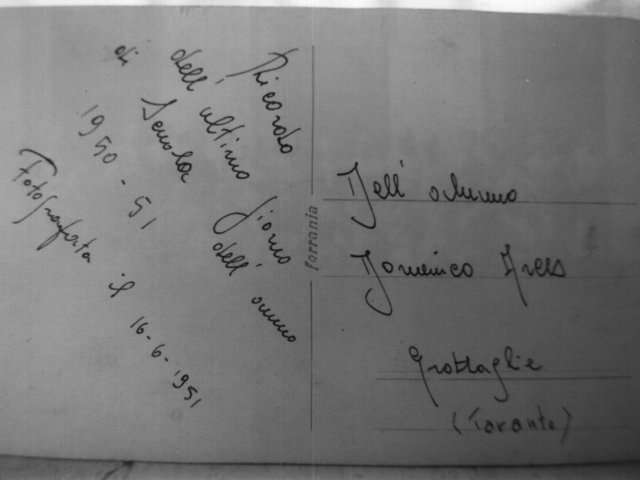 Ricordo
dell'ultimo giorno
di Scuola dell'anno
1950-51
Fotografata il 16-6-1951
ferrania
Dell'alunno
Domenico
Grottaglie
(Taranto)